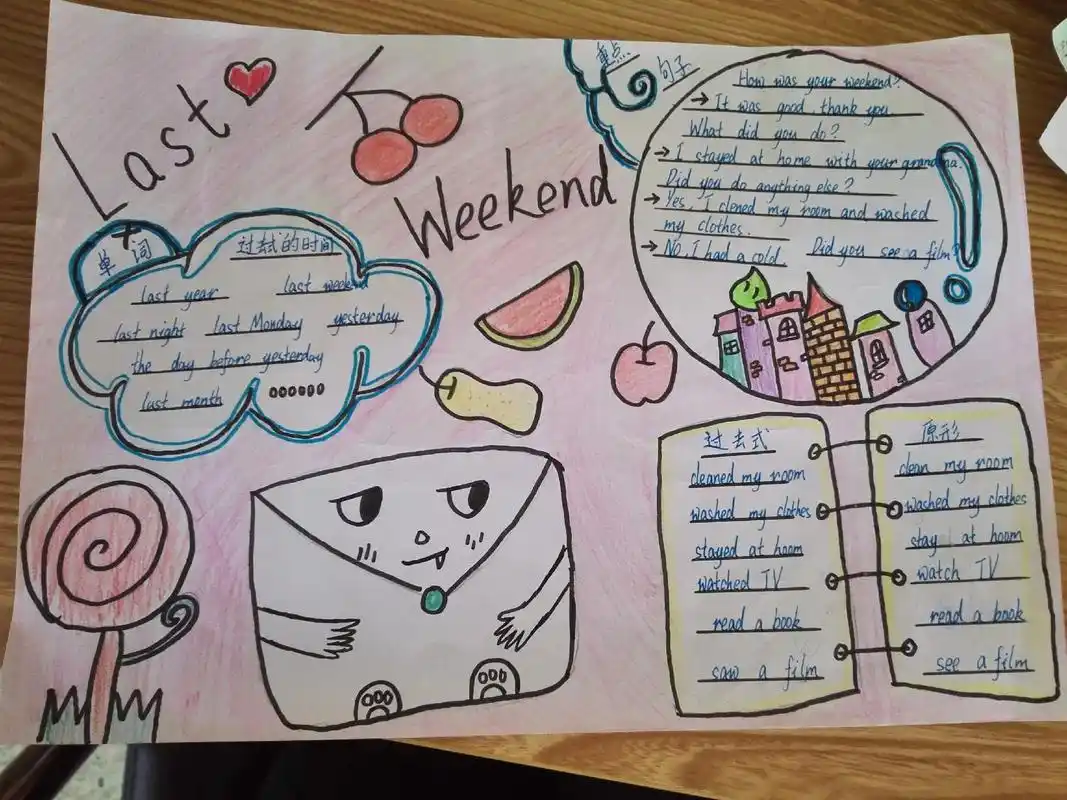 Last
Weekend
重点
句子
How was your weekend?
→ It was good, thank you.
What did you do?
→ I stayed at home with your grandma.
Did you do anything else?
→ Yes, I clened my room and washed
my clothes.
→ No, I had a cold. Did you see a film?
单词
过去式的时间
last year last weekend
last night last Monday yesterday
the day before yesterday
last month ......
过去式
cleaned my room
washed my clothes
stayed at hoom
watched TV
read a book
saw a film
原形
clean my room
washed my clothes
stay at hoom
watch TV
read a book
see a film